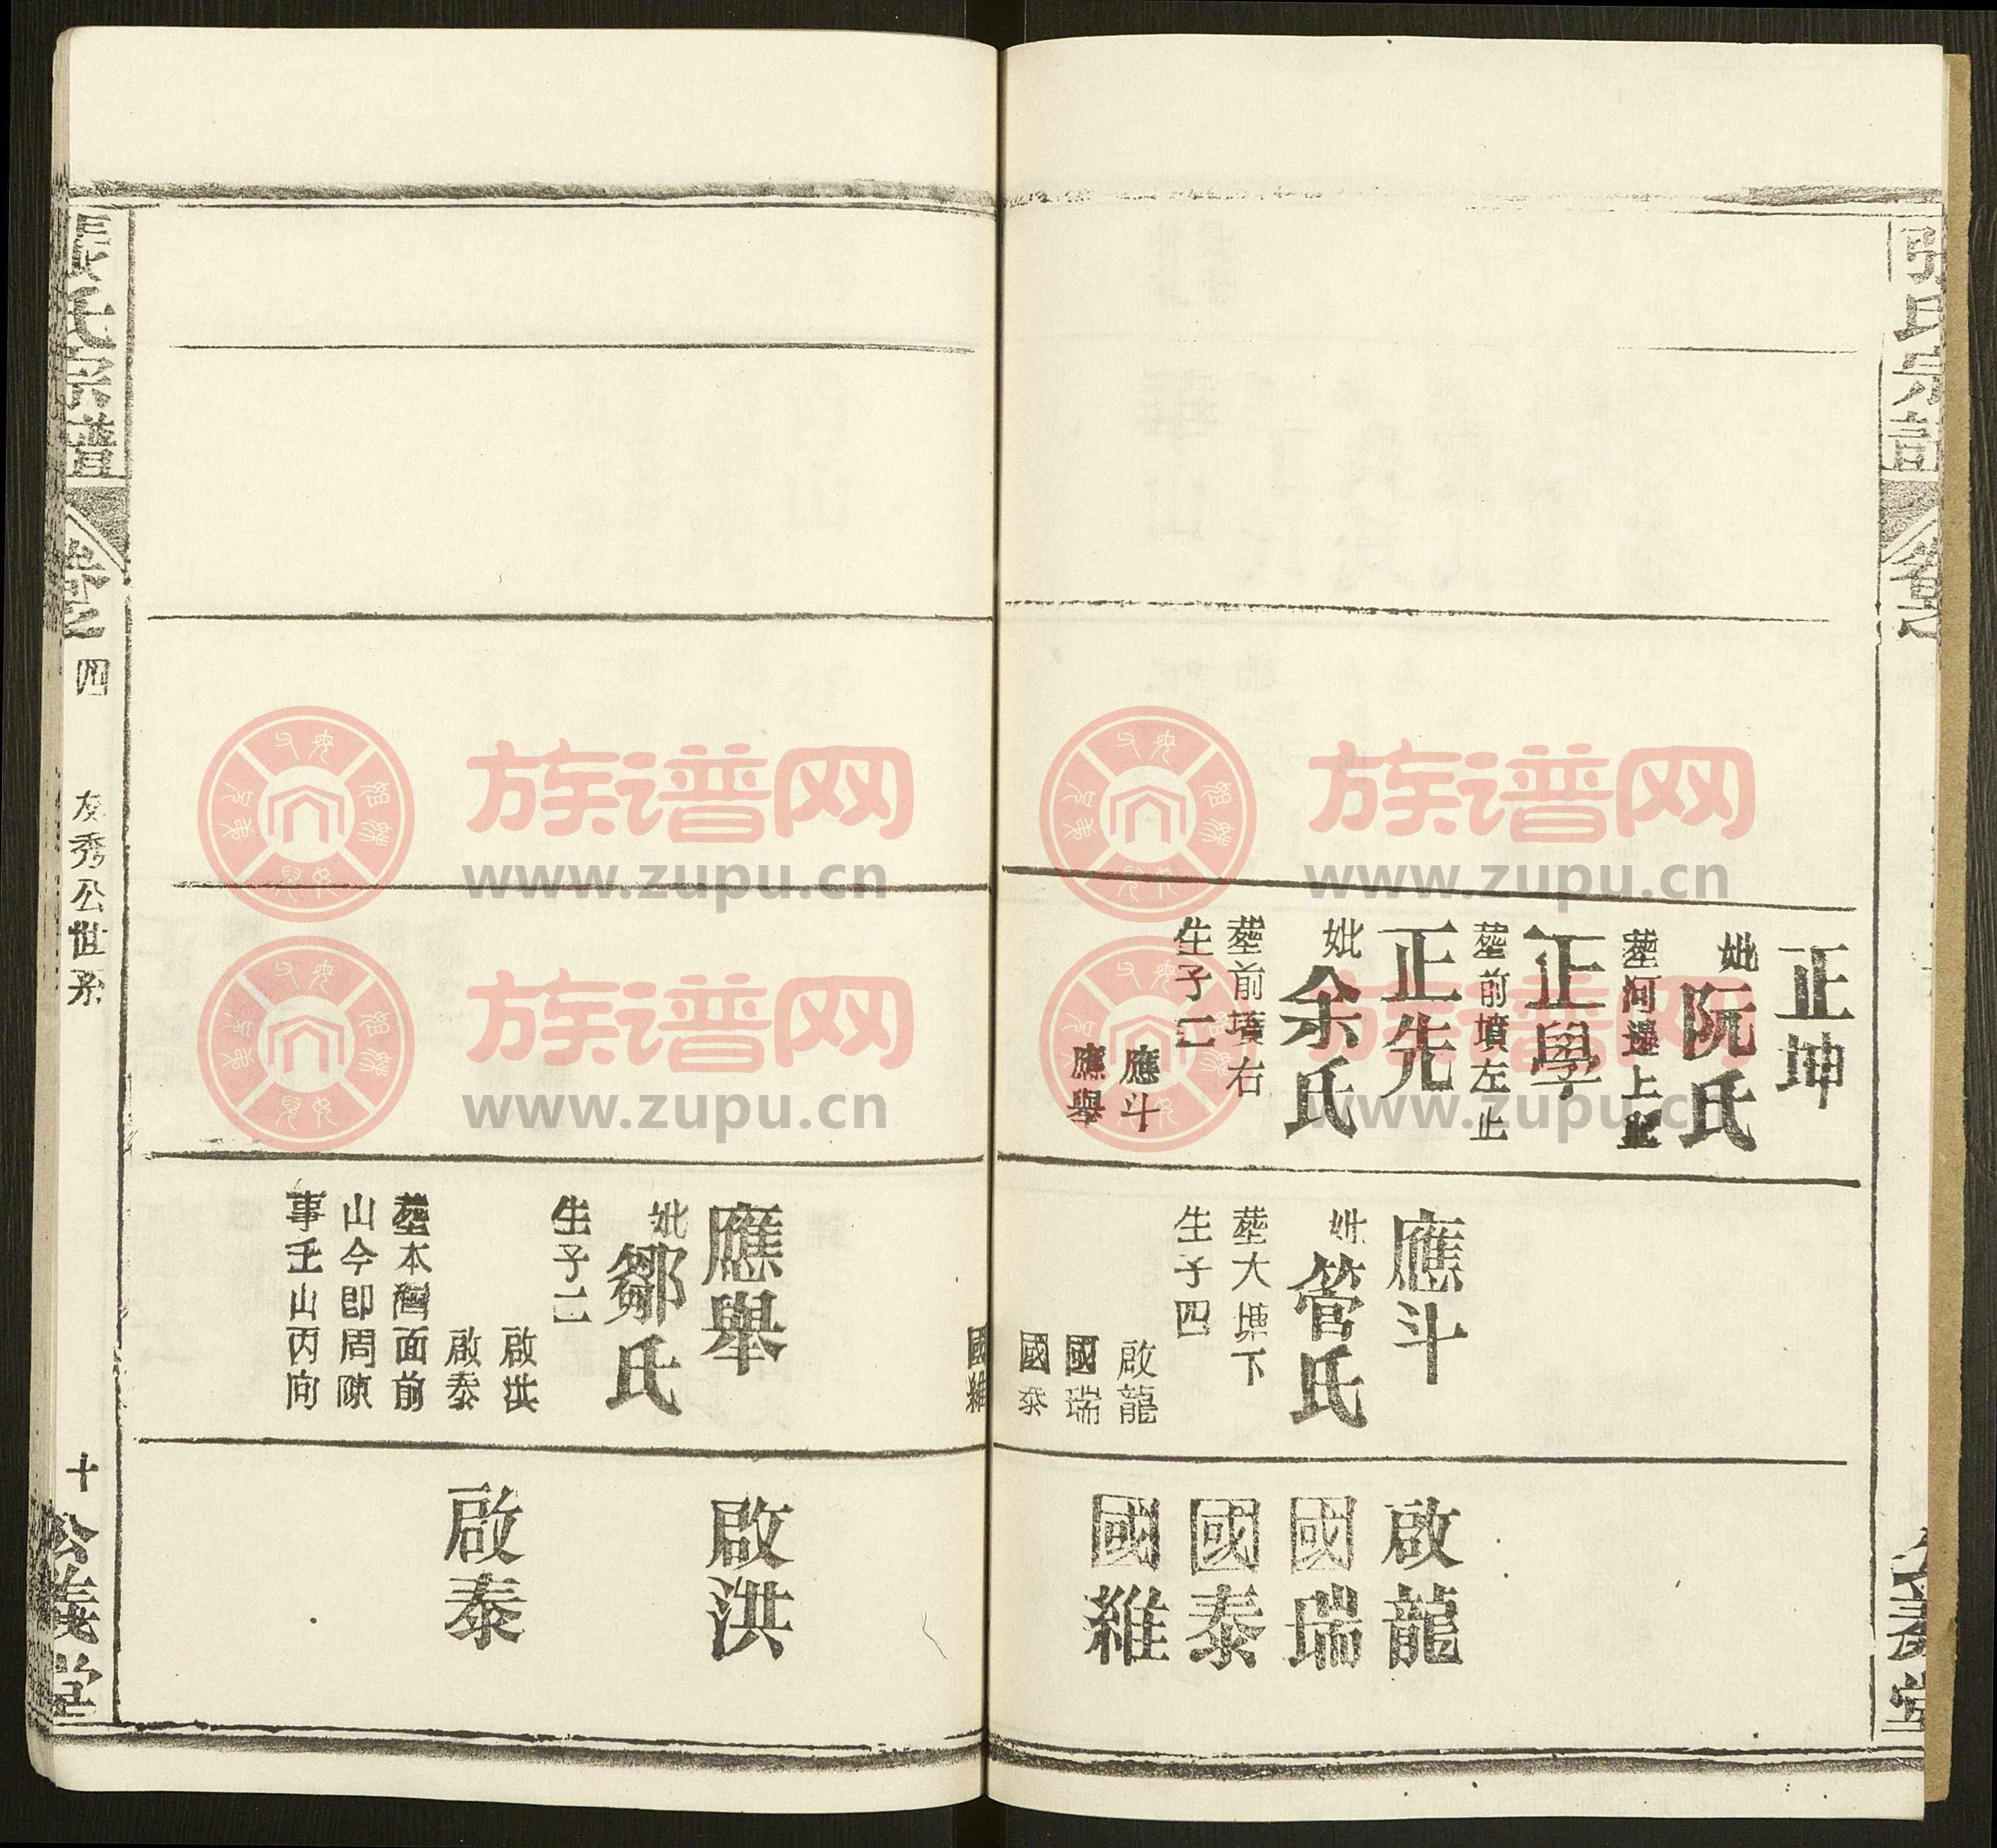 張氏宗譜
正坤
妣阮氏
塟河邊上坐
正學
塟前墳左止
正先
妣余氏
塟前墳右
生子二
應斗
應舉
應斗
妣管氏
塟大塘下
生子四
啟龍
國瑞
國泰
國維
啟龍
國瑞
國泰
國維
應舉
妣鄒氏
生子二
啟洪
啟泰
塟本灣面前
山今卽周陳
事壬山丙向
啟洪
啟泰
張氏宗譜
卷之四
友秀公世系
十
公義堂
族谱网
www.zupu.cn
族谱网
www.zupu.cn
族谱网
www.zupu.cn
族谱网
www.zupu.cn